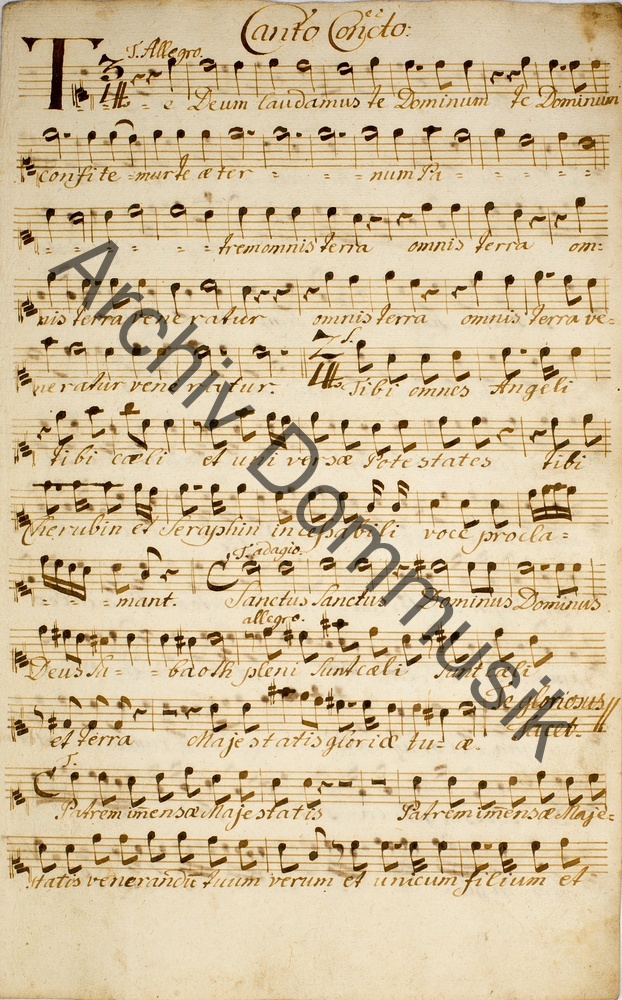 Canto Conc.to:
T. Allegro.
Te Deum laudamus te Dominum te Dominum
confite-mur te æter - - - num Pa - - -
- - - - - trem omnis terra omnis terra om=
nis terra veneratur omnis terra omnis terra ve=
neratur veneratur. S. Tibi omnes Angeli
tibi cœli et universæ Potestates tibi
Cherubin et Seraphin incessabili voce procla=
- - - mant. Sanctus Sanctus Dominus Dominus
T. adagio.
Deus Sa - - baoth pleni sunt cœli sunt cœli
allegro.
et terra Majestatis gloriæ tu - æ. Te gloriosus
tacet.
T.
Patrem im̃ensæ Majestatis Patrem im̃ensæ Maje=
statis venerandũ tuum verum et unicum filium et
Archiv Dommusik